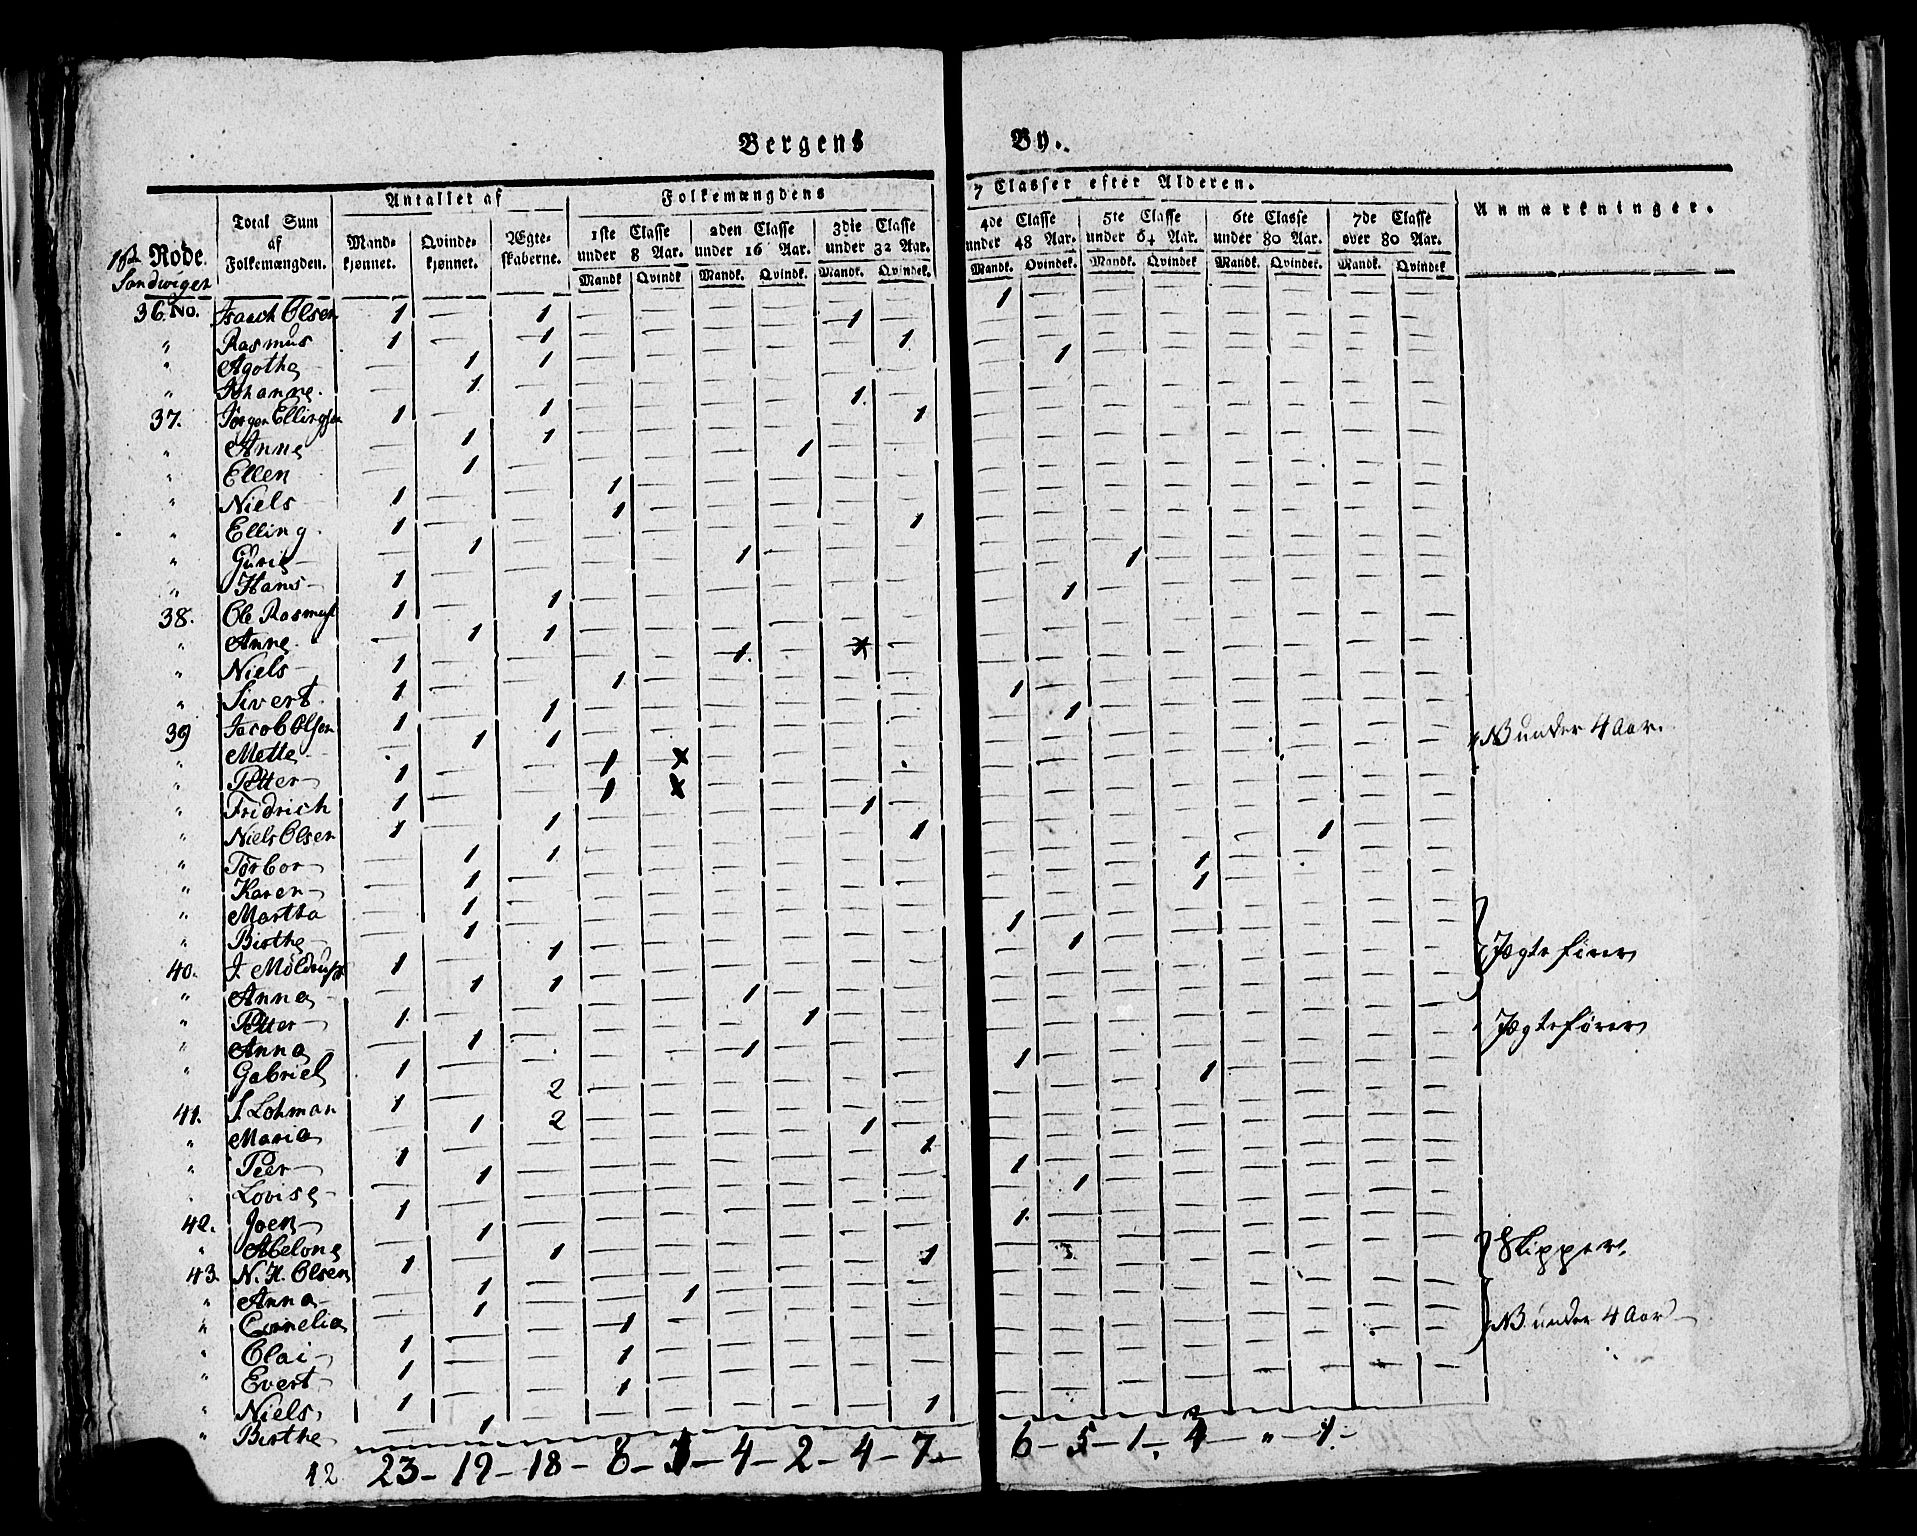 Bergens By.
Antallet af Folkemængdens 7 Classer efter Alderen.
Total Sum af Folkemængden. Mandkjønnet. Qvindekjønnet. Ægteskaberne. 1ste Classe under 8 Aar. 2den Classe under 16 Aar. 3die Classe under 32 Aar. 4de Classe under 48 Aar. 5te Classe under 64 Aar. 6te Classe under 80 Aar. 7de Classe over 80 Aar. Anmærkninger.
Mandk. Qvindk. Mandk. Qvindk. Mandk. Qvindek. Mandk. Qvindek. Mandk. Qvindek Mandk. Qvindek. Mandk. Qvindek
Rode.
Sandwigen
36. No. Isaach Olsen 1 — 1 1
" Rasmus 1 — 1 1
" Agotha — 1 1 1
" Johanne. — 1 — 1
37. Jørgen Ellingsen 1 — 1 1
" Anne — 1 1 1
" Ellen — 1 — 1
" Niels 1 — — 1
" Elling. 1 — — 1
" Gurie — 1 — 1
" Hans 1 — — 1
38. Ole Rasmus 1 — 1 1
" Anne. — 1 1 1
" Niels 1 — — 1
" Sivert. 1 — — 1
39 Jacob Olsen 1 — 1 1
" Mette — 1 1 1
" Petter 1 — — 1 NB under 4 Aar.
" Fridrich 1 — — 1
" Niels Olsen 1 — 1 1
" Torbor — 1 1 1
" Karen — 1 — 1
" Martha — 1 — 1
" Birthe — 1 — 1
40. J. Møldrup 1 — 1 1 Jægtefører
" Anna — 1 1 1
" Petter 1 — — 1
" Anna — 1 — 1
" Gabriel 1 — — 1
41. J. Lohman 1 — 2 1 Jægtefører
" Maria — 1 2 1
" Peer 1 — — 1
" Lovise — 1 — 1
42. Joen 1 — — 1
" Abelone — 1 — 1
43. N. H. Olsen 1 — 1 1 Skipper.
" Anna — 1 — 1
" Cornelia — 1 — 1
" Clai 1 — — 1 NB under 4 Aar
" Evert 1 — — 1
" Niels 1 — — 1
" Birthe — 1 — 1
42 23 — 19 — 18 — 8 — 1 — 4 — 2 — 4 — 7. — 6 — 5 — 1 — 4 — " — 1. —